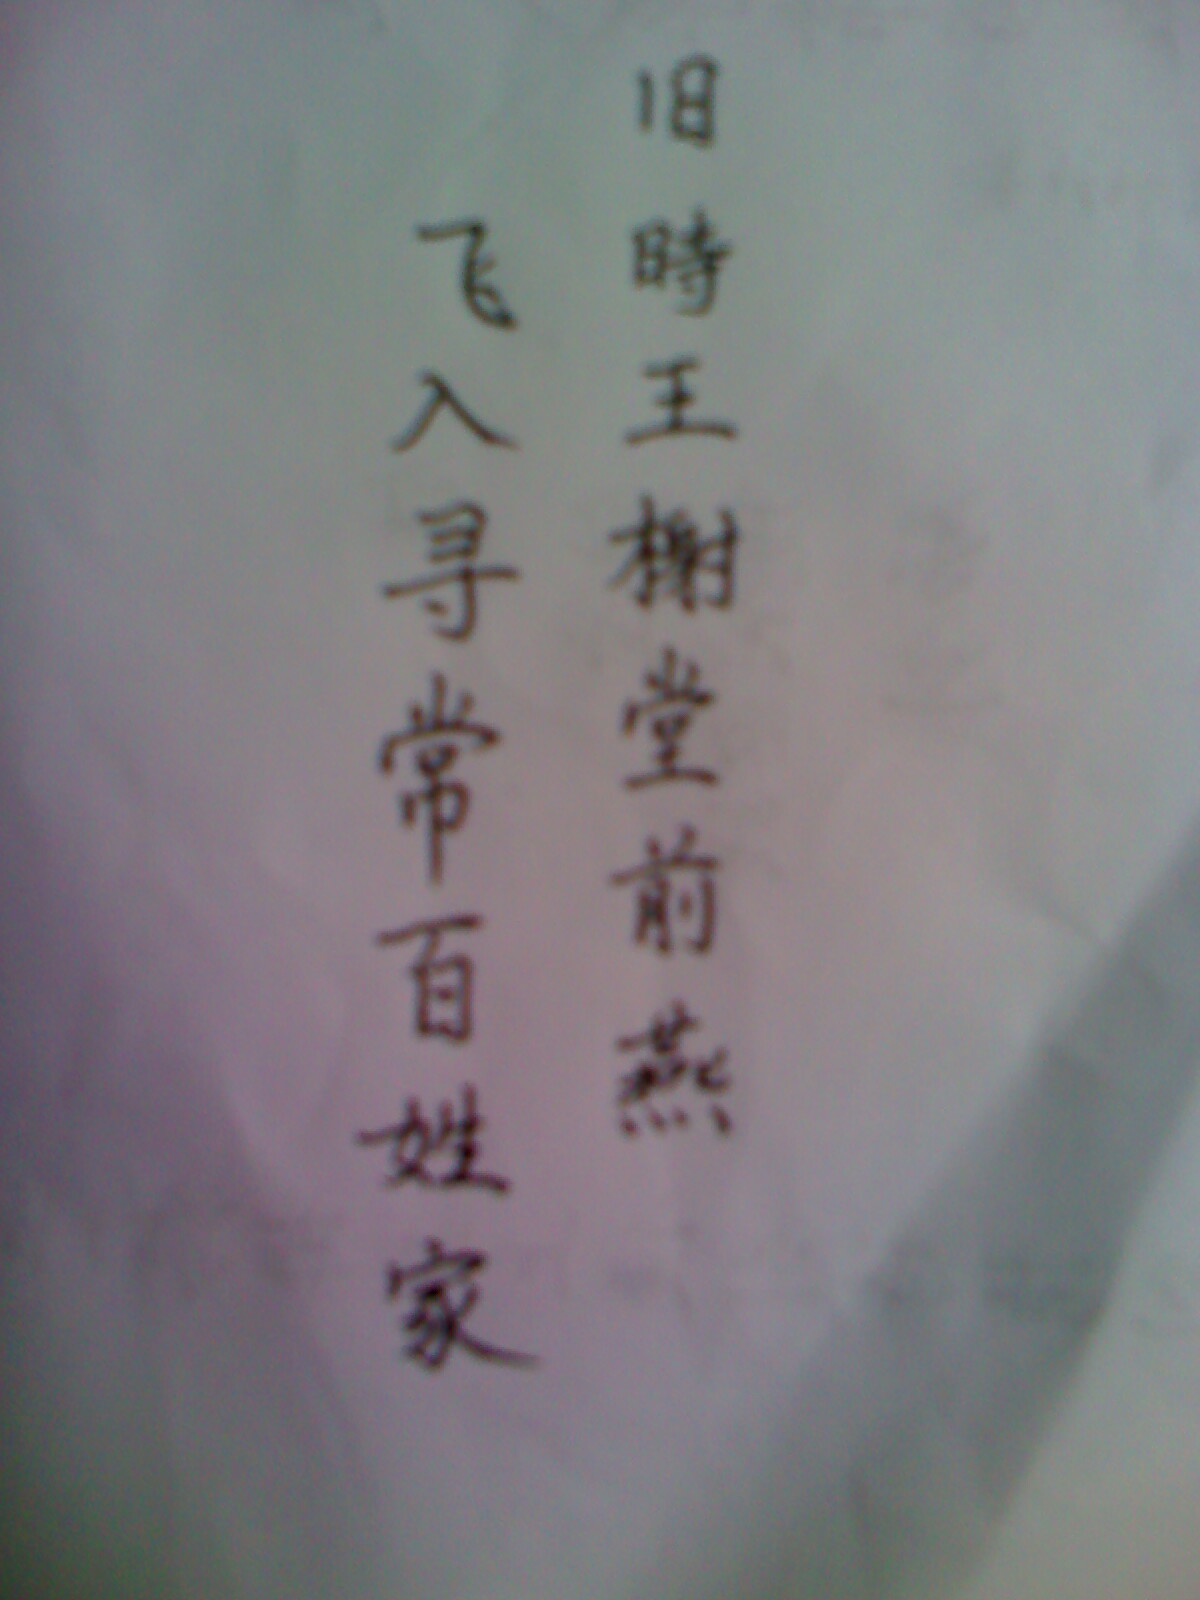 旧時王榭堂前燕
飞入寻常百姓家